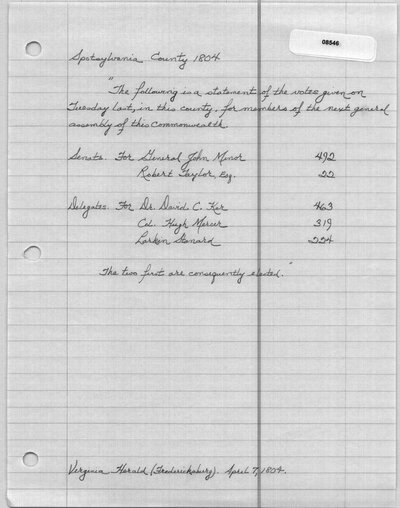 08546
Spotsylvania County 1804
"The following is a statement of the votes given on
Tuesday last, in this county, for members of the next general
assembly of this Commonwealth.
Senate. For General John Minor 492
Robert Taylor, Esq. 22
Delegates. For Dr. David C. Ker 463
Col. Hugh Mercer 319
Larkin Stanard 224
The two first are consequently elected."
Virginia Herald (Fredericksburg). April 7, 1804.